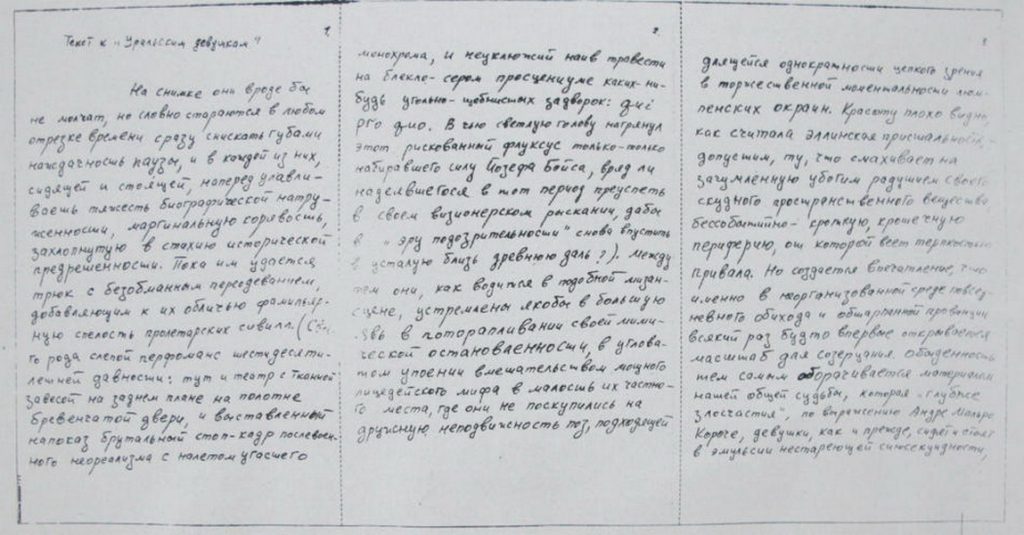 Текст к „Уральским девушкам"
1.
На снимке они вроде бы
не молчат, но словно стараются в любом
отрезке времени сразу снискать губами
наждачность паузы, и в каждой из них,
сидящей и стоящей, наперед улавли-
ваешь тяжесть биографической натру-
женности, маргинальную корявость,
захлопнутую в стихию исторической
предрешенности. Пока им удается
трюк с безобманным переодеванием,
добавляющим к их обличью фамильяр-
ную спелость пролетарских сивилл. (Сво-
го рода слепой перформанс шестидесяти-
летней давности: тут и театр с тканной
завесой на заднем плане на полотне
бревенчатой двери, и выставленный
напоказ брутальный стоп-кадр послевоен-
ного неореализма с налетом угасшего
2.
монохрома, и неуклюжий наив травести
на блекло-сером просцениуме каких-ни-
будь угольно-щебнистых задворок:
рго фио. В чью светлую голову нагрянул
этот рискованный флуксус только-только
набиравшего силу Йозефа Бойса, вряд ли
надеявшегося в тот период преуспеть
в своем визионерском рыскании, дабы
в „эру подозрительности" снова впустить
в усталую близь древнюю даль?). Между
тем они, как водится в подобной мизан-
сцене, устремлены якобы в большую
в поторапливании своей мими-
ческой остановленности, в углова-
том упоении вмешательством мощного
лицедейского мифа в малость их частно-
го места, где они не поскупились на
дружную неподвижность поз, подходящей
длящейся однократности цепкого зрения
в торжественной моментальности люм-
пенских окраин. Красоту плохо видно,
как считала эллинская пристальность,
допустим, ту, что смахивает на
зачумленную убогим радушием своего
скудного пространственного вещества
бессобытийно-кроткую, крошечную
периферию, от которой веет терпкостью
привала. Но создается впечатление, что
именно в неорганизованной среде повсед-
невного обихода и обшарпанной провинции
всякий раз будто впервые открывается
масштаб для созерцания. Обыденность
тем самым оборачивается материалом
нашей общей судьбы, которая „глубже
злосчастия", по выражению Андре Мальро
Короче, девушки, как и прежде, сидят и стоят
в эмульсии нестареющей сиюсекундности,